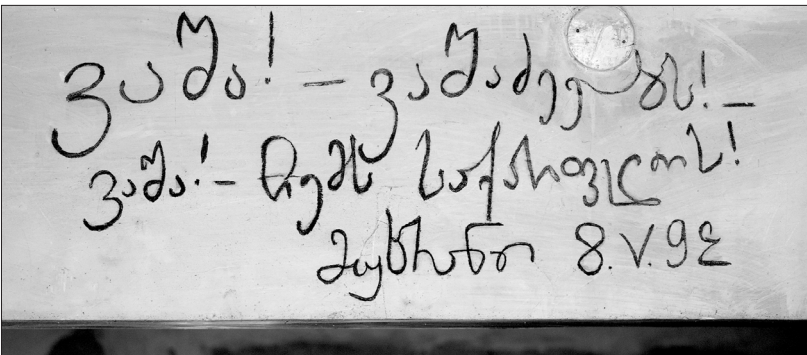 ვაშა! – ვაშაძეებს! –
ვაშა! – ჩემს საქართველოს!
მუხრანი 8.V.98